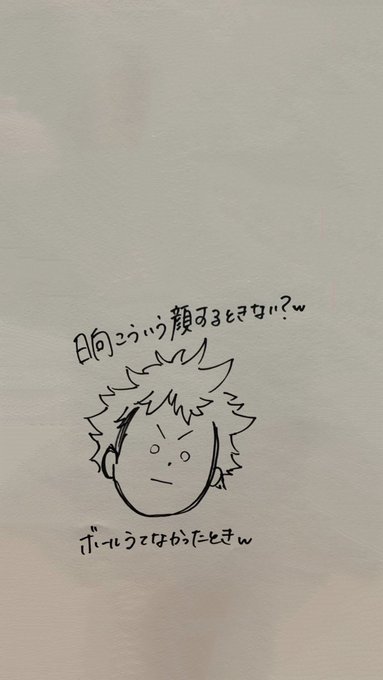 日向こういう顔するときない?w
ボールうてなかったときw